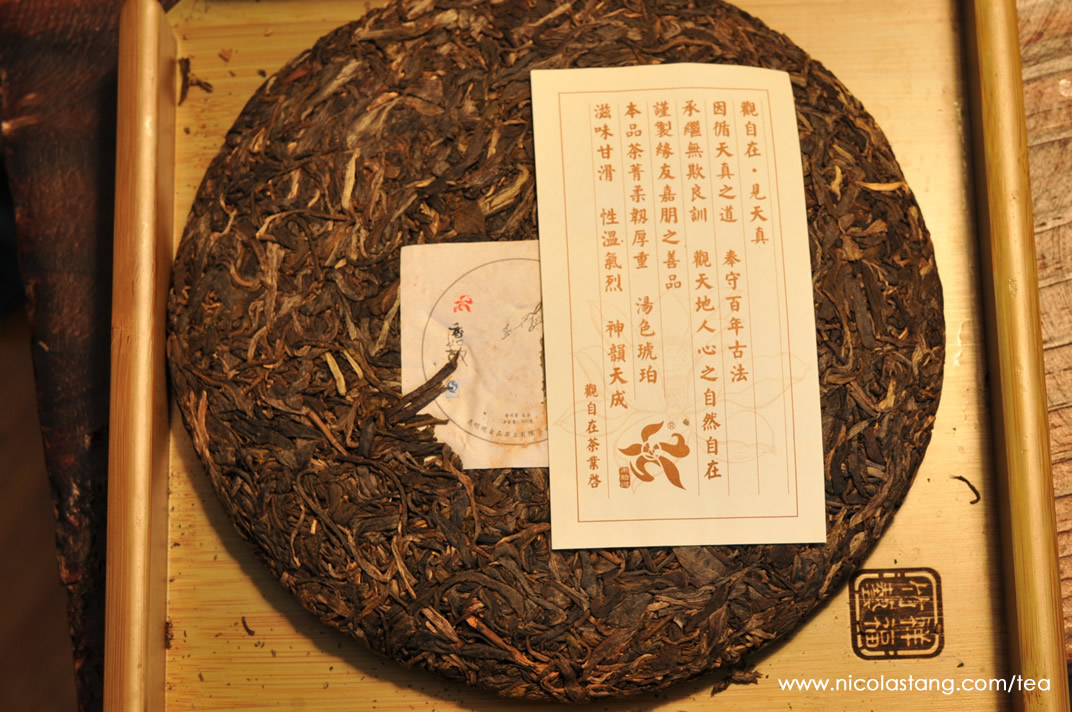 觀自在·見天真
因循天真之道　奉守百年古法
承繼無欺良訓　觀天地人心之自然自在
謹製緣友嘉朋之善品
本品茶菁柔韌厚重　湯色琥珀
滋味甘滑　性溫氣烈　神韻天成
觀自在茶業啓
®
竹藝
祥福
www.nicolastang.com/tea